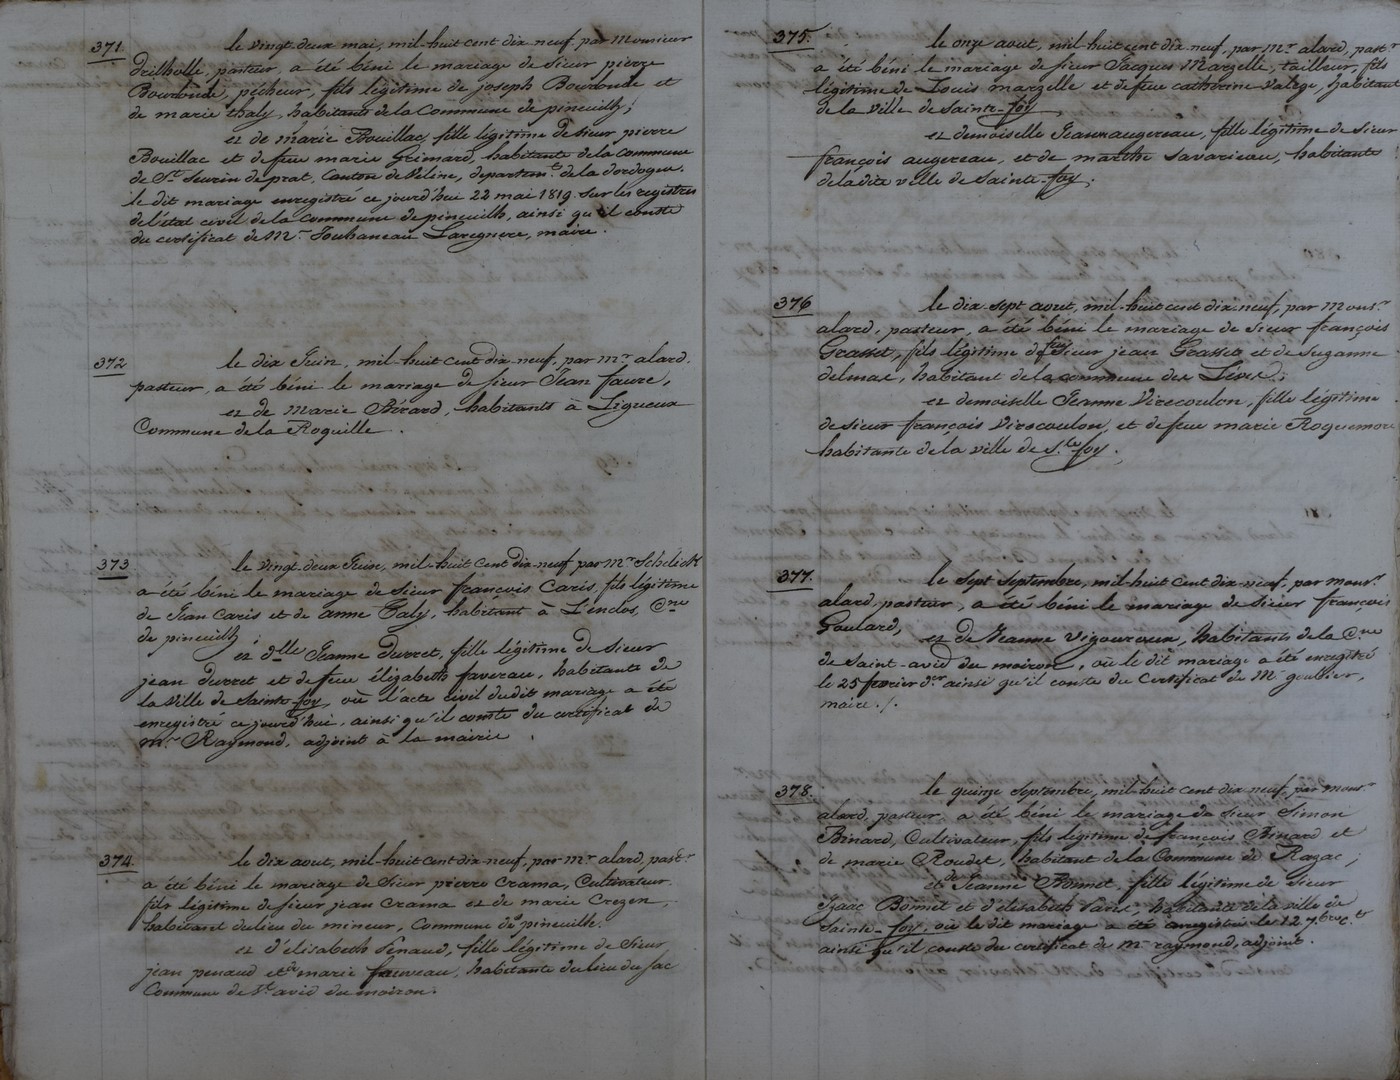 371. le vingt deux mai, mil-huit cent dix-neuf, par Monsieur
Drilholle, pasteur, a été béni le mariage de sieur pierre
Bourbude, pêcheur, fils légitime de joseph Bourbude et
de marie thaly, habitants de la Commune de pineuilh;
et de marie Bouillac, fille légitime de sieur pierre
Bouillac et de feue marie Grimard, habitante de la Commune
de St. Seurin de prat, Canton de Vélines, département de la dordogne.
le dit mariage enregistré ce jourd'hui 22 mai 1819. sur les registres
de l'état civil de la Commune de pineuilh, ainsi qu'il conste
du certificat de Mr. Laregnere, maire.
372 le dix Juin, mil-huit cent dix-neuf, par mr. alard,
pasteur, a été béni le mariage de sieur Jean faure,
et de Marie Bérard, habitants à Ligueux
Commune de la Roquille.
373 le vingt-deux Juin, mil-huit cent dix-neuf par mr. Schelick
a été béni le mariage de sieur françois Caris, fils légitime
de Jean Caris et de anne Faly, habitant à L'enclos, Cne
de pineuilh;
et dlle Jeanne Durret, fille légitime de sieur
jean durret et de feue élizabeth favereau, habitante de
la ville de Sainte-foy, où l'acte civil du dit mariage a été
enregistré ce jourd'hui, ainsi qu'il conste du certificat de
mr. Raymond, adjoint à la mairie.
374. le dix aout, mil-huit cent-dix-neuf, par mr alard, pastr
a été béni le mariage de sieur pierre Crama, Cultivateur
fils légitime de sieur jean Crama et de marie Crezen,
habitant du lieu du mineur, Commune de pineuilh.
et d'elisabeth Penaud, fille légitime de sieur
jean penaud et de marie fauveau, habitante du lieu du sac
Commune de St. avid du moiron.
375. le onze aout, mil-huit cent dix-neuf, par mr. alard, pastr.
a été béni le mariage de sieur Jacques Marzelle, tailleur, fils
légitime de Louis marzelle et de feue catherine Valege, habitant
de la ville de Sainte-foy
et demoiselle Jeanne augereau, fille légitime de sieur
françois augereau, et de marthe Savarieau, habitante
de la dite ville de Sainte-foy;
376 le dix-sept aout, mil-huit cent dix-neuf, par Monsr
alard, pasteur, a été béni le mariage de sieur françois
Grasset, fils légitime de feu sieur jean Grasset et de Suzanne
delmas, habitant de la commune des Lèves;
et demoiselle Jeanne Virecoulon, fille légitime
de sieur françois Virecoulon, et de feue marie Roquemore
habitante de la ville de Ste. foy.
377. le sept septembre, mil-huit cent dix-neuf, par monsr.
alard, pasteur, a été béni le mariage de sieur françois
Goulard,
et de Jeanne Vigouroux, habitants de la Cne
de Saint-avid du moiron, où le dit mariage a été enregistré
le 25 fevrier dr. ainsi qu'il conste du Certificat de Mr goulier,
maire./.
378. le quinze septembre, mil-huit cent dix-neuf, par monsr
alard, pasteur, a été béni le mariage du sieur Simon
Binard, Cultivateur, fils légitime de françois Binard et
de marie Roudet, habitant de la Commune de Razac;
et de Jeanne Bonnet, fille légitime de sieur
Isaac Bonnet et d'élisabeth Paris, habitante de la ville de
Sainte-foy, où le dit mariage a été enregistré le 12 7bre ct.
ainsi qu'il conste du certificat de mr raymond, adjoint.